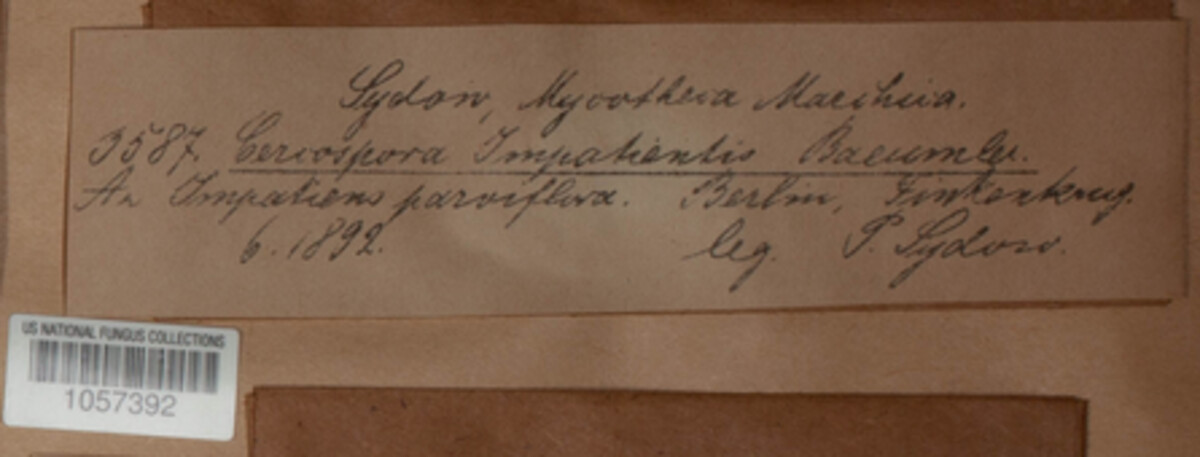 Sydow, Mycotheca Marchica.
3587. Cercospora Impatientis Baeumler.
An Impatiens parviflora. Berlin, Finkenkrug.
6. 1892. leg. P. Sydow.
US NATIONAL FUNGUS COLLECTIONS
1057392